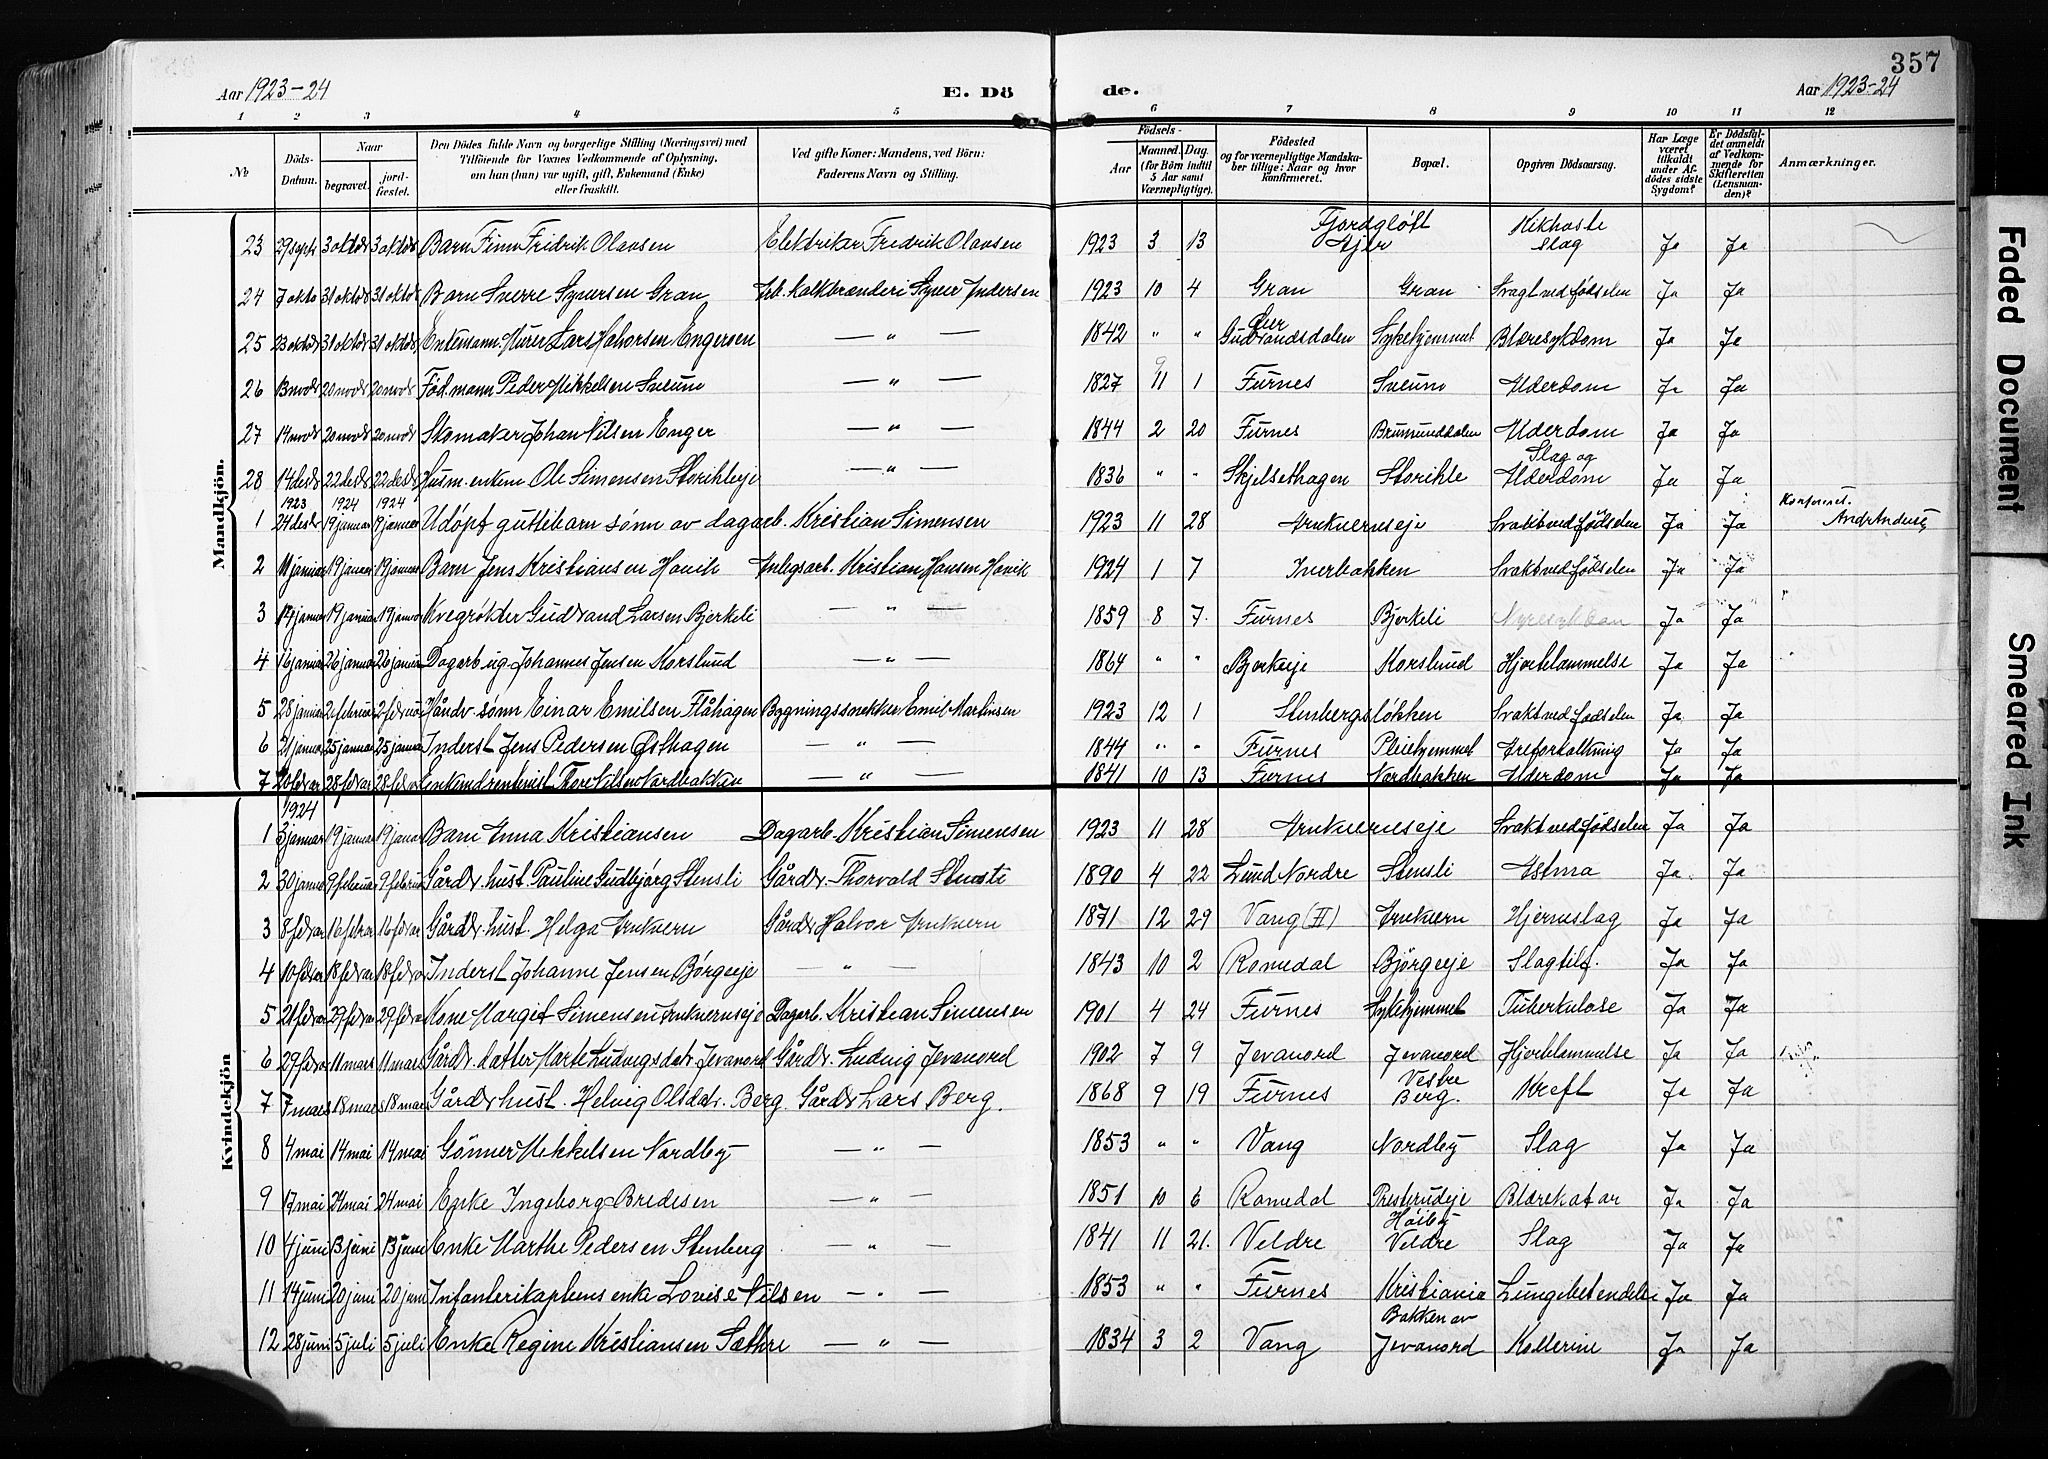 357
Aar 1923-24 E. Dö de. Aar 1923-24
1 2 3 4 5 6 7 8 9 10 11 12
№ Döds-Datum. Naar begravet. jordfæstet. Den Dödes fulde Navn og borgerlige Stilling (Næringsvei) med Tilföiende for Voxnes Vedkommende af Oplysning, om han (hun) var ugift, gift, Enkemand (Enke) eller fraskilt. Ved gifte Koner: Mandens, ved Börn: Faderens Navn og Stilling. Födsels- Aar Maaned. Dag. (for Börn indtil 5 Aar samt Værnepligtige). Födested og for værnepligtige Mandskaber tillige: Naar og hvor konfirmeret. Bopæl. Opgiven Dödsaarsag. Har Læge været tilkaldt under Afdödes sidste Sygdom? Er Dödsfaldet anmeldt af Vedkommende for Skifteretten (Lensmanden)? Anmærkninger.
Mandkjön.
23 29 sept 3 oktbr 3 oktbr Barn Finn Fridrik Olavsen Elektriker Fredrik Olavsen 1923 3 13 Fjordgløtt Kikhoste Slag Ja Ja
24 7 oktb 31 oktbr 31 oktbr Barn Sverre Syversen Gran Arb. kalkbrænderi Syver Andersen 1923 10 4 Gran Gran Svagt ved fødselen Ja Ja
25 23 oktbr 31 oktbr 31 oktbr Enkemann. Murer Lars Halvorsen Engersen — " — 1842 " " Øier Gudbrandsdalen Sykehjemmet Blæresykdom Ja Ja
26 13 novbr 20 novbr 20 novbr Fød. mann Peder Mikkelsen Sveum — " — 1827 11 1 Furnes Sveum Alderdom Ja Ja
27 14 novbr 20 novbr 20 novbr Skomaker Johan Nilsen Enger — " — 1844 2 20 Furnes Brumunddalen Alderdom Ja Ja
28 14 desbr 22 desbr 22 desbr Husm. enkem Ole Simensen Storihleeje — " — 1836 " - Skjelsethagen Storihle Slag og Alderdom Ja Ja
1923 1924 1924
1 24 desbr 19 januar 19 januar Udøpt guttebarn sønn av dagarb. Kristian Simensen 1923 11 28 Arnkverneseje Svakt ved fødselen Ja Ja Konferert.
2 11 januar 19 januar 19 januar Barn Jens Kristiansen Hovik Anlegsarb. Kristian Hansen Hovik 1924 1 7 Iverbakken Svakt ved fødselen Ja Ja
3 14 januar 19 januar 19 januar Kvegrøkter Gudbrand Larsen Bjerkeli — " — 1859 8 7. Furnes Bjerkeli Nyresykdom Ja Ja "
4 16 januar 26 januar 26 januar Dagarb. ug. Johannes Jensen Korslund — " — 1864 " " Bjerkeeje Korslund Hjertelammelse Ja Ja
5 28 januar 2 februar 2 februar Håndv. sønn Einar Emilsen Flåhagen Bygningssnekker Emil Martinsen 1923 12 1 Stenbergsløkken Svakt ved fødselen Ja Ja
6 21 januar 25 januar 25 januar Inderst Jens Pedersen Østhagen — " — 1844 " " Furnes Pleiehjemmet Areforkalkning Ja Ja
7 20 febar 28 febar 28 febar Enkemd. rentenist Thore Nilsen Nordbakken — " — 1841 10 13 Furnes Nordbakken Alderdom Ja Ja
Kvindekjön
1924
1 3 januar 19 januar 19 januar Barn Anna Kristiansen Dagarb. Kristian Simensen 1923 11 28 Arnkverneseje Svakt ved fødselen Ja Ja
2 30 januar 9 februar 9 februar Gårdbr. hust. Pauline Gudbjørg Stensli Gårdbr. Thorvald Stensli 1890 4 22 Lund Nordre Stensli Astma Ja Ja
3 8 febar 16 febrar 16 febar Gårdbr. hust. Helga Arnkvern Gårdbr Halvor Arnkvern 1871 12 29 Vang (H) Arnkvern Hjerneslag Ja Ja
4 10 febar 18 febar 18 febar Inderst Johanne Jensen Børgeeje — " — 1843 10 2 Romedal Bjørgeeje Slagtilf. Ja Ja
5 21 febar 29 febar 29 febar Kone Margit Simensen Arnkverneseje Dagarb. Kristian Simensen 1901 4 24 Furnes Sykehjemmet Tuberkulose Ja Ja
6 29 febar 11 mars 11 mars Gårdbr. datter Marte Ludvigsdatr. Jevanord Gårdbr. Ludvig Jevanord 1902 7 9 Jevanord Jevanord Hjertelammelse Ja Ja
7 7 mars 18 mars 18 mars Gårdbr hust. Helvig Olsdatr. Berg. Gårdbr Lars Berg. 1868 9 19 Furnes Vestre Berg. Kreft Ja Ja
8 4 mai 14 mai 14 mai Gønner Mikkelsen Nordby — " — 1853 " " Vang Nordby Slag Ja Ja
9 17 mai 24 mai 24 mai Enke Ingeborg Bredesen — " — 1851 10 6 Romedal Presterudeje Blærekatar Ja Ja
10 4 juni 13 juni 13 juni Enke Marthe Pedersen Stenberg — " — 1841 11 21. Veldre Høiby Veldre Slag Ja Ja
11 14 juni 20 juni 20 juni Infanterikapteins enke Lovise Nilsen — " — 1853 " " Furnes Kristiania Lungebetendelse Ja Ja
12 28 juni 5 juli 5 juli Enke Regine Kristiansen Sæthre — " — 1834 3 2 Vang Bakken av Jevanord Kollerine Ja Ja
Faded Document
Smeared Ink